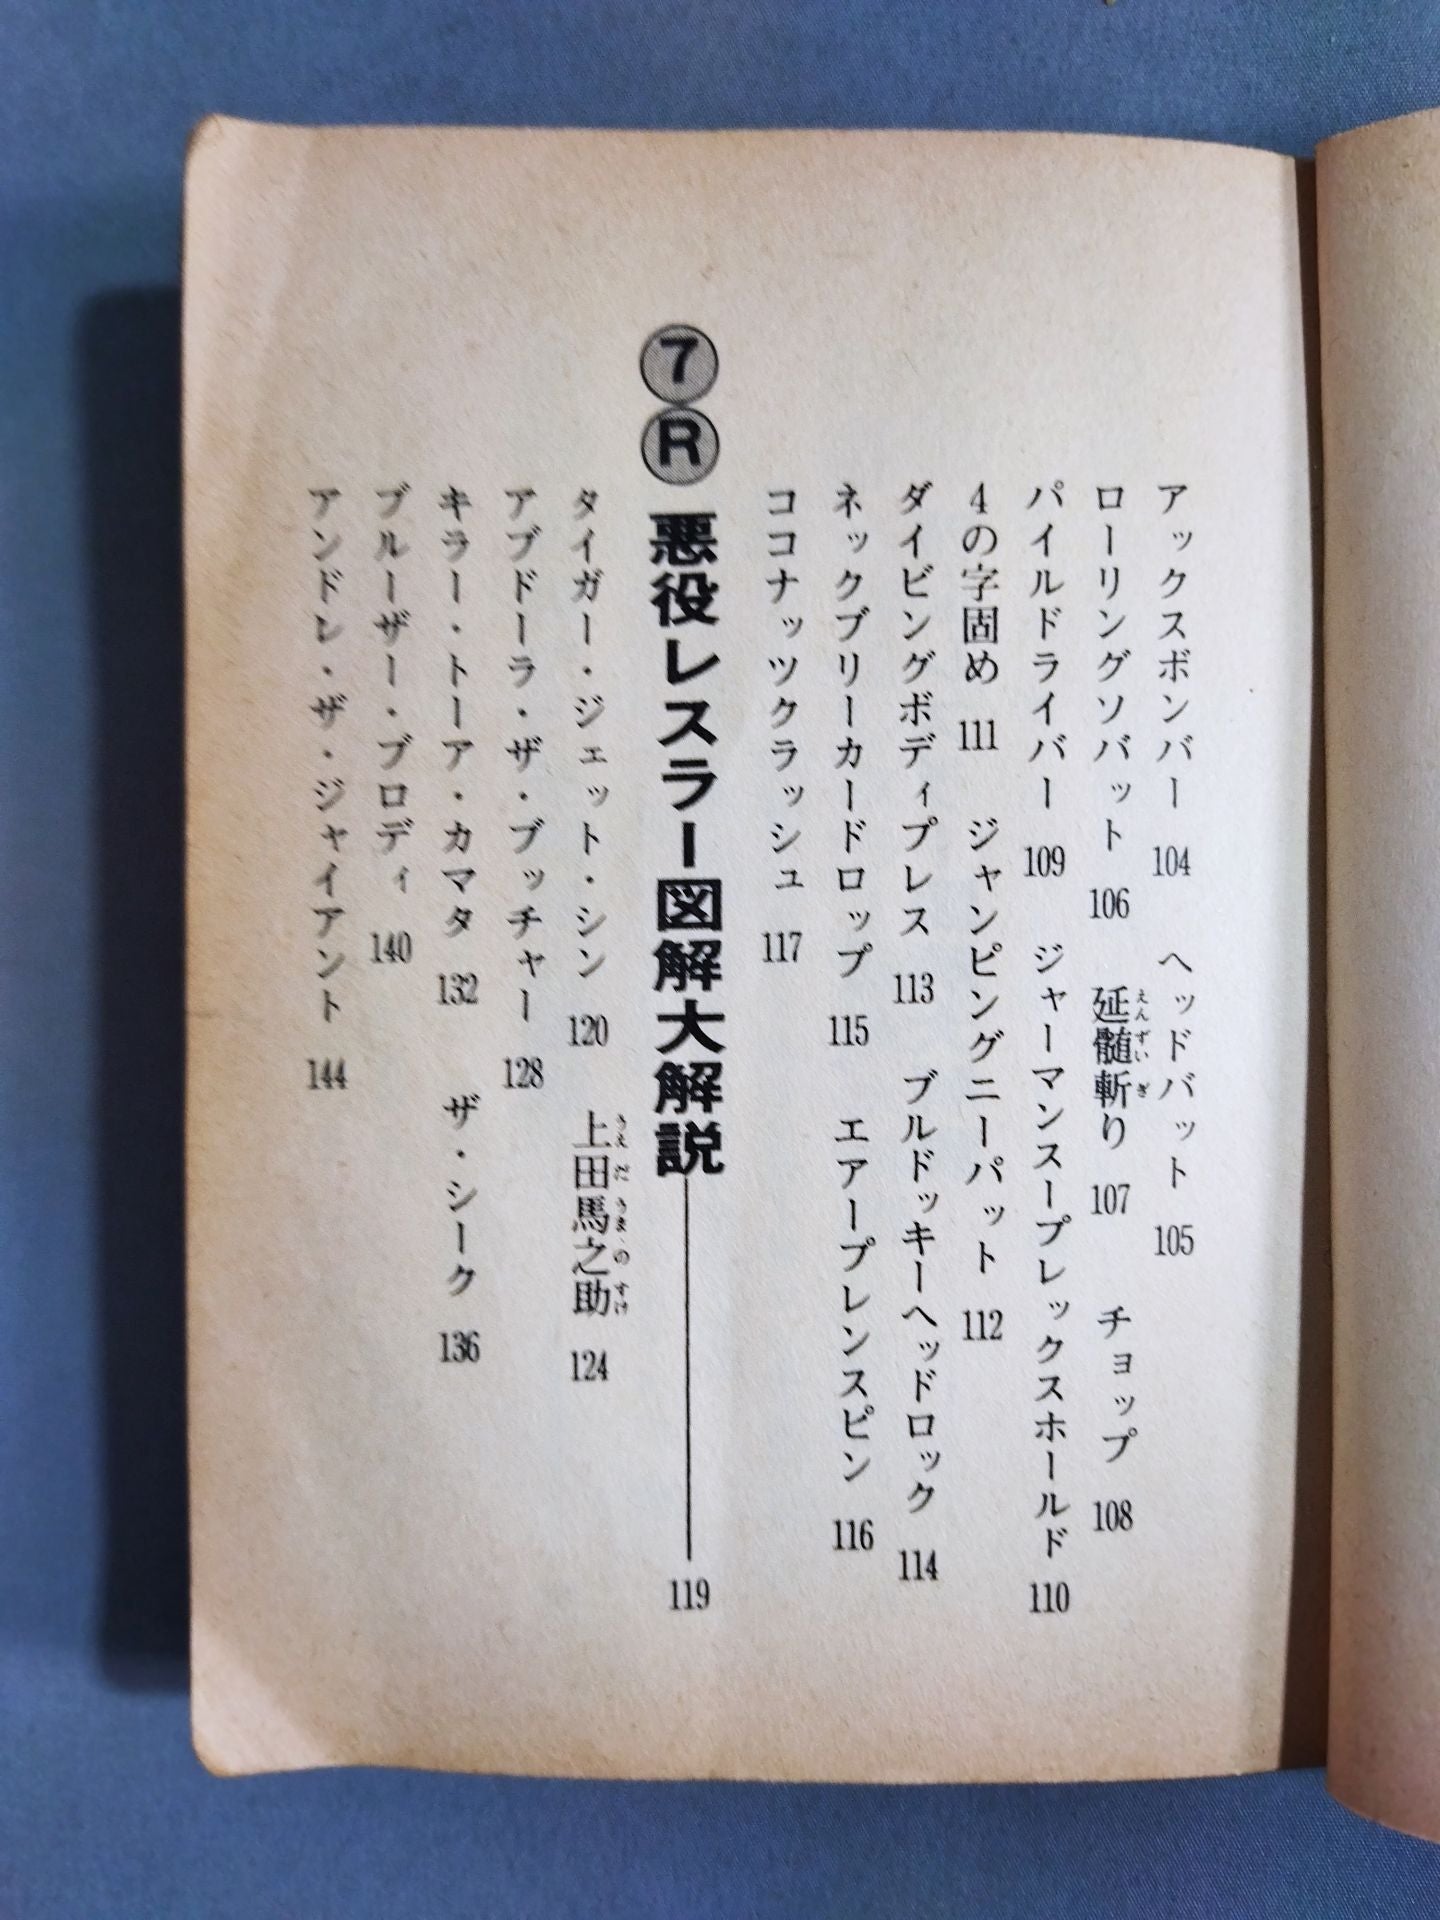 アックスボンバー 104 ヘッドバット 105
ローリングソバット 106 延髄斬り 107 チョップ 108
えんずいぎ
パイルドライバー 109 ジャーマンスープレックスホールド 110
4の字固め 111 ジャンピングニーパット 112
ダイビングボディプレス 113 ブルドッキーヘッドロック 114
ネックブリーカードロップ 115 エアープレンスピン 116
ココナッツクラッシュ 117
7R 悪役レスラー図解大解説 119
タイガー・ジェット・シン 120 上田馬之助 124
うえだうまのすけ
アブドーラ・ザ・ブッチャー 128
キラー・トーア・カマタ 132 ザ・シーク 136
ブルーザー・ブロディ 140
アンドレ・ザ・ジャイアント 144